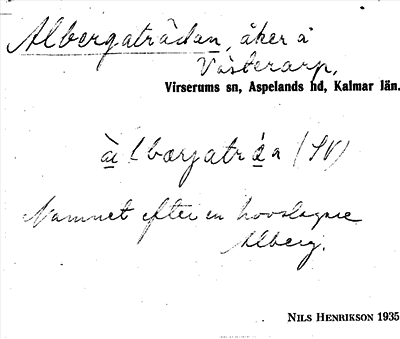 Albergaträdan, åker å
Västerarp,
Virserums sn, Aspelands hd, Kalmar län.
àlbærjatráa (SV)
Namnet efter en hovslagare
Alberg.
NILS HENRIKSON 1935